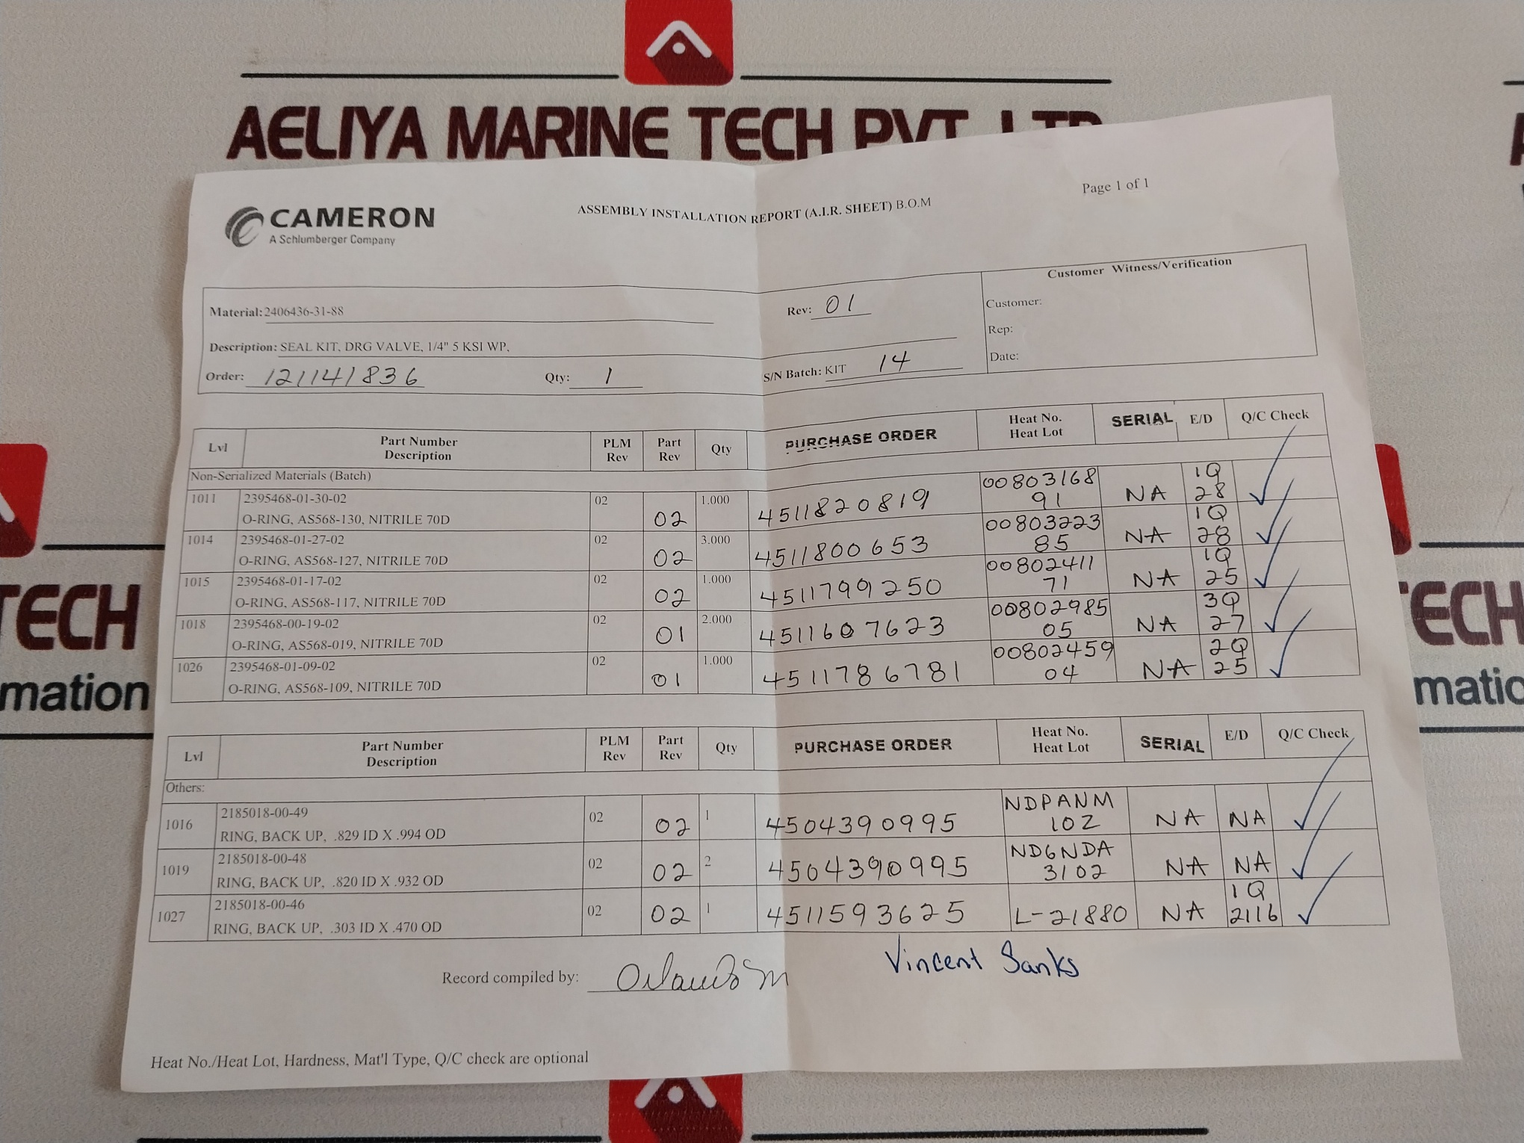 AELIYA MARINE TECH PVT. LTD
CAMERON
A Schlumberger Company
ASSEMBLY INSTALLATION REPORT (A.I.R. SHEET) B.O.M
Page 1 of 1
Material: 2406436-31-88
Rev: 01
Customer Witness/Verification
Customer:
Rep:
Date:
Description: SEAL KIT, DRG VALVE, 1/4" 5 KSI WP,
Order: 121141836 Qty: 1 S/N Batch: KIT 14
Lvl Part Number Description PLM Rev Part Rev Qty PURCHASE ORDER Heat No. Heat Lot SERIAL E/D Q/C Check
Non-Serialized Materials (Batch)
1011 2395468-01-30-02 02 02 1.000 4511820819 00803168 91 NA 1Q 28
O-RING, AS568-130, NITRILE 70D
1014 2395468-01-27-02 02 02 3.000 4511800653 00803223 85 NA 1Q 28
O-RING, AS568-127, NITRILE 70D
1015 2395468-01-17-02 02 02 1.000 4511799250 00802411 71 NA 1Q 25
O-RING, AS568-117, NITRILE 70D
1018 2395468-00-19-02 02 01 2.000 4511607623 00802985 05 NA 3Q 27
O-RING, AS568-019, NITRILE 70D
1026 2395468-01-09-02 02 01 1.000 4511786781 00802459 04 NA 2Q 25
O-RING, AS568-109, NITRILE 70D
Lvl Part Number Description PLM Rev Part Rev Qty PURCHASE ORDER Heat No. Heat Lot SERIAL E/D Q/C Check
Others:
1016 2185018-00-49 02 02 1 4504390995 NDPANM 102 NA NA
RING, BACK UP, .829 ID X .994 OD
1019 2185018-00-48 02 02 2 4504390995 NDGNDA 3102 NA NA
RING, BACK UP, .820 ID X .932 OD
1027 2185018-00-46 02 02 1 4511593625 L-21880 NA 1Q 2116
RING, BACK UP, .303 ID X .470 OD
Record compiled by: Orlando M
Vincent Sanks
Heat No./Heat Lot, Hardness, Mat'l Type, Q/C check are optional
TECH
mation
TECH
matio